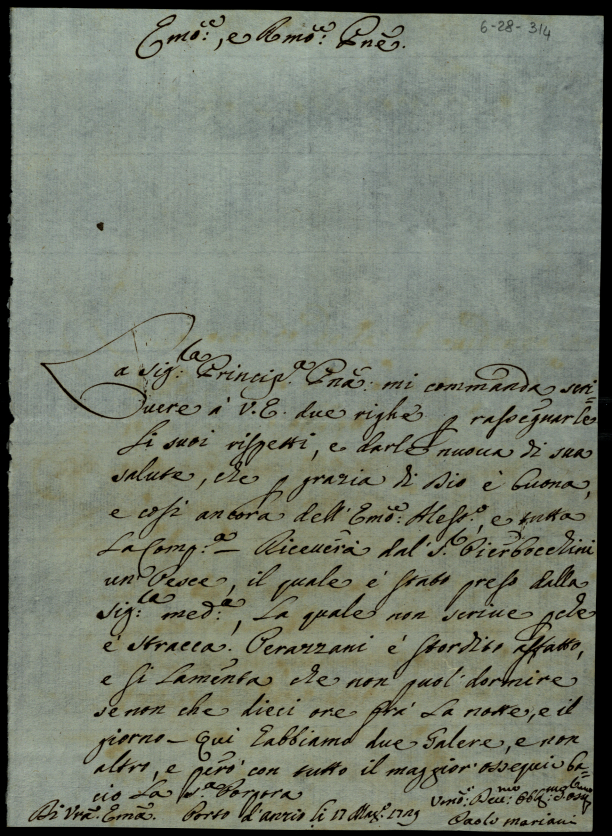 6-28-314
Emo:, e Rmo: Pne.
La Sig:ra Princip:a Pna: mi commanda scri=
uere à V.E. due righe p rasegnarle
li suoi rispetti, e darle nuoua di sua
salute, che p grazia di Dio è buona,
e così ancora dell'Emo: Aless:o, e tutta
la Comp:a – Riceuerà dal S:r Pierbecchini
un Pesce, il quale è stato preso dalla
Sig:ra med:a, la quale non scriue pche
è stracca. Perazzani è stordito affatto,
e si lamenta che non puol dormire
se non che dieci ore frà la notte, e il
giorno – Qui habbiamo due Galere, e non
altro, e però con tutto il maggior ossequi ba=
cio la S:a Porpora
Di Vra: Ema: Porto d'Anzio li 17 Mag:o 1729
Vmo: Deu:mo Obblig:mo
Paolo Mariani